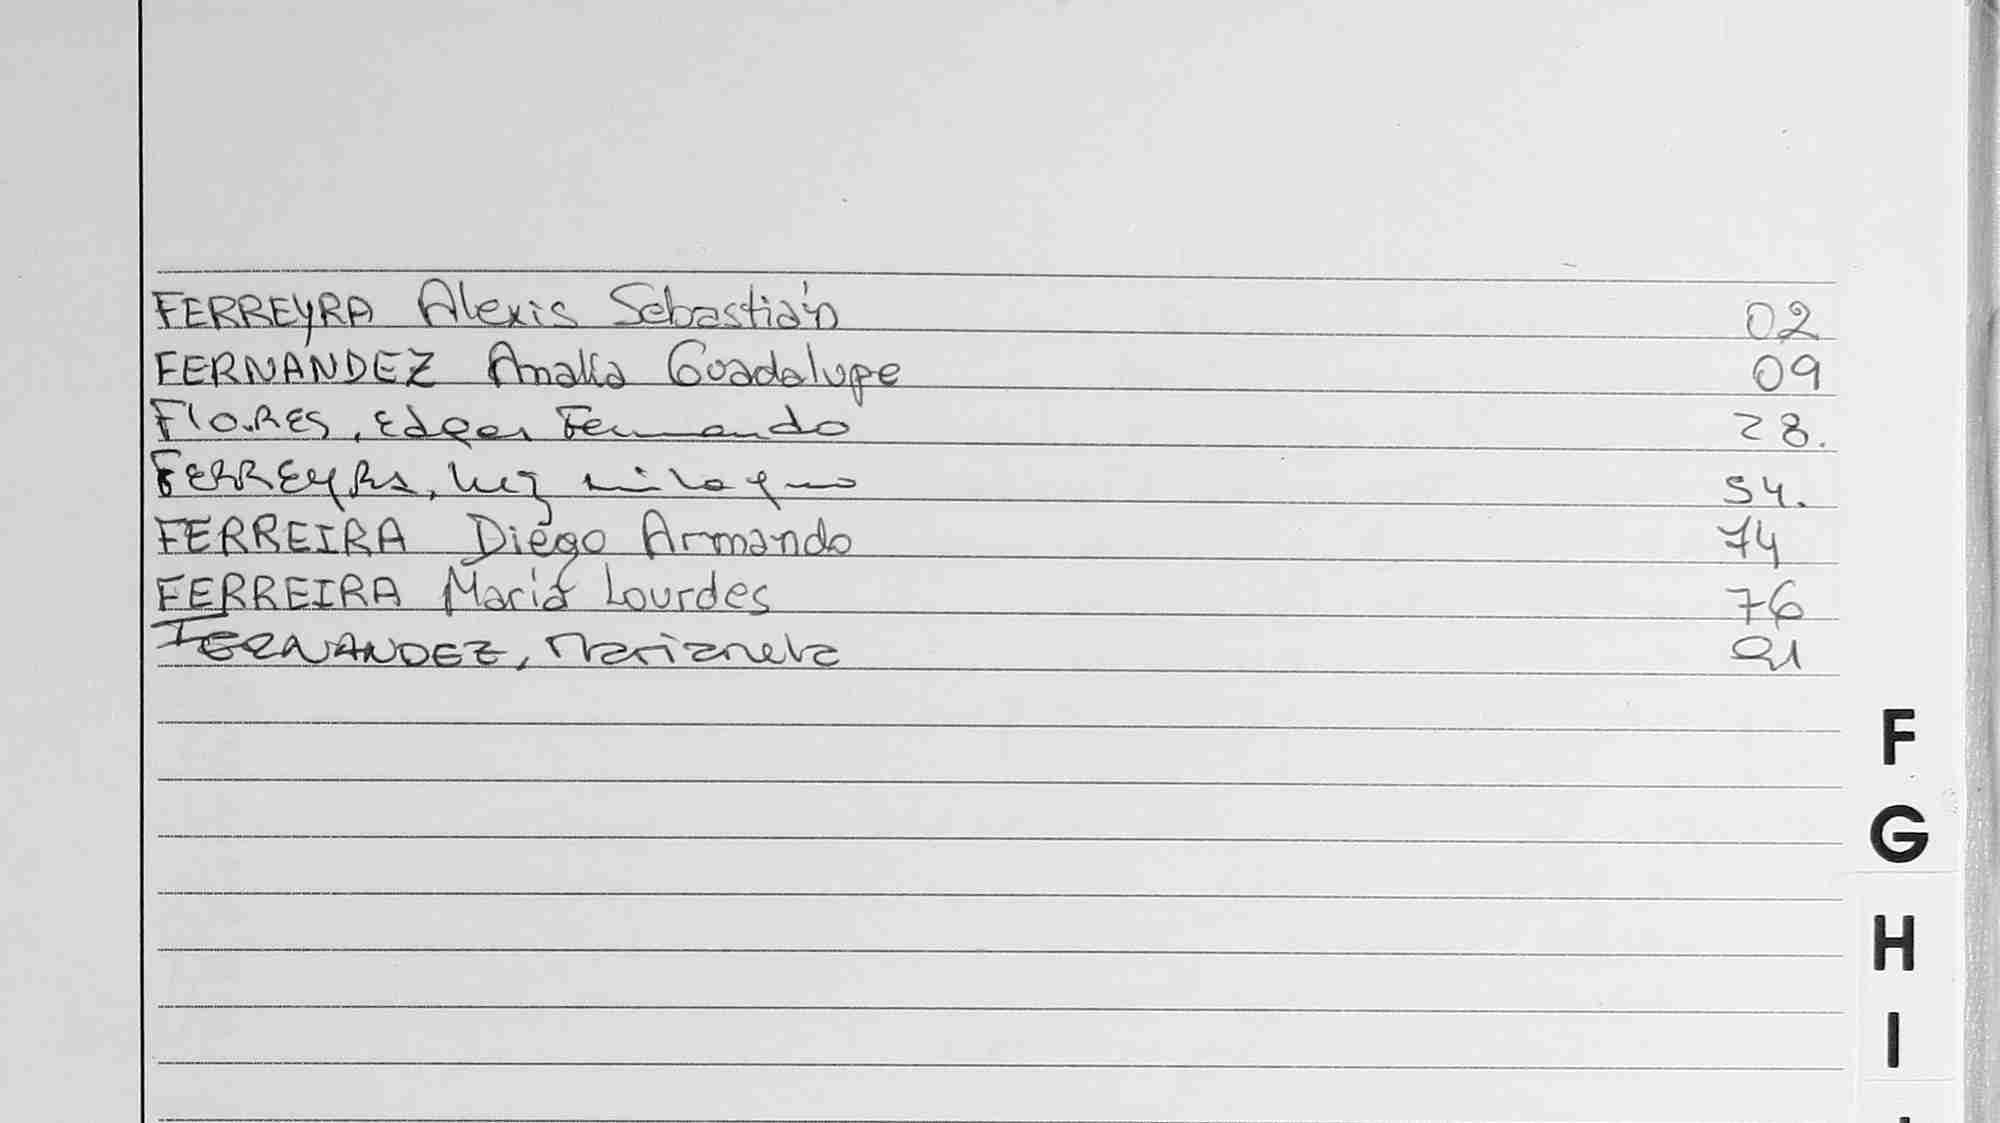 FERREYRA Alexis Sebastián 02
FERNANDEZ Analía Guadalupe 09
FloRES, Edgar Fernando 28.
FERREYRA, Luz milagro 54.
FERREIRA Diego Armando 74
FERREIRA María Lourdes 76
FERNANDEZ, Marianela 91
F
G
H
I